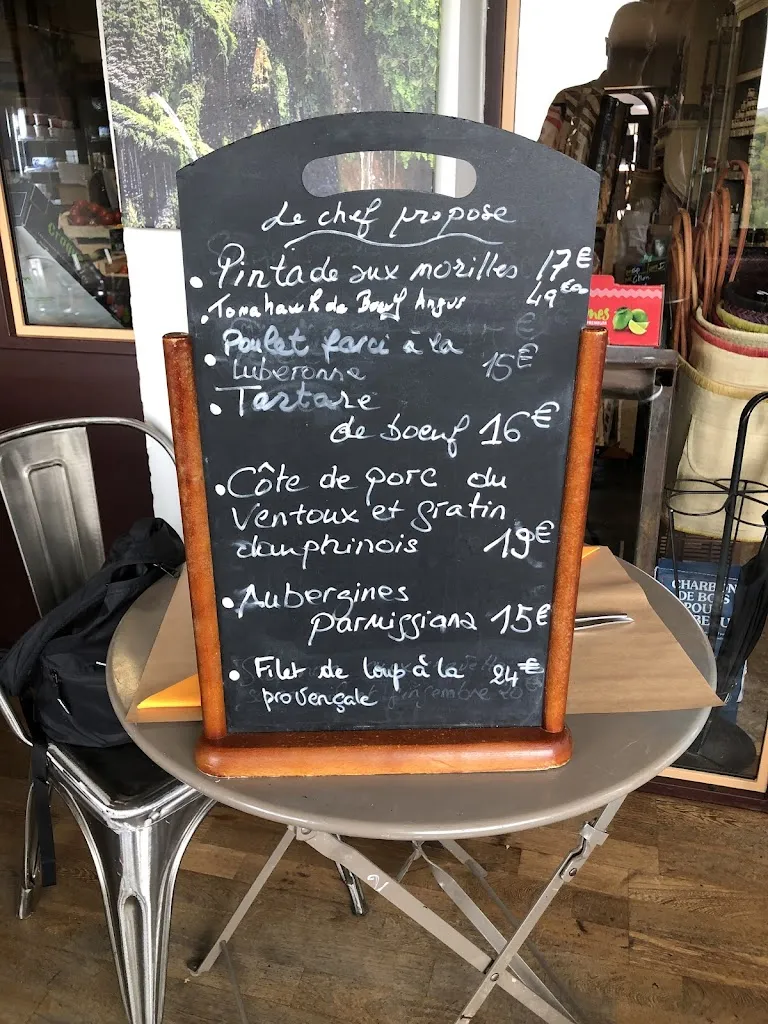 Le chef propose
• Pintade aux morilles 17€
• Tomahawk de Boeuf Angus 49€
• Poulet farci à la
Luberonne 15€
• Tartare
de boeuf 16€
• Côte de porc du
Ventoux et gratin
dauphinois 19€
• Aubergines
parmissiana 15€
• Filet de loup à la 24€
provençale
CHARBON
DE BOIS
POUR